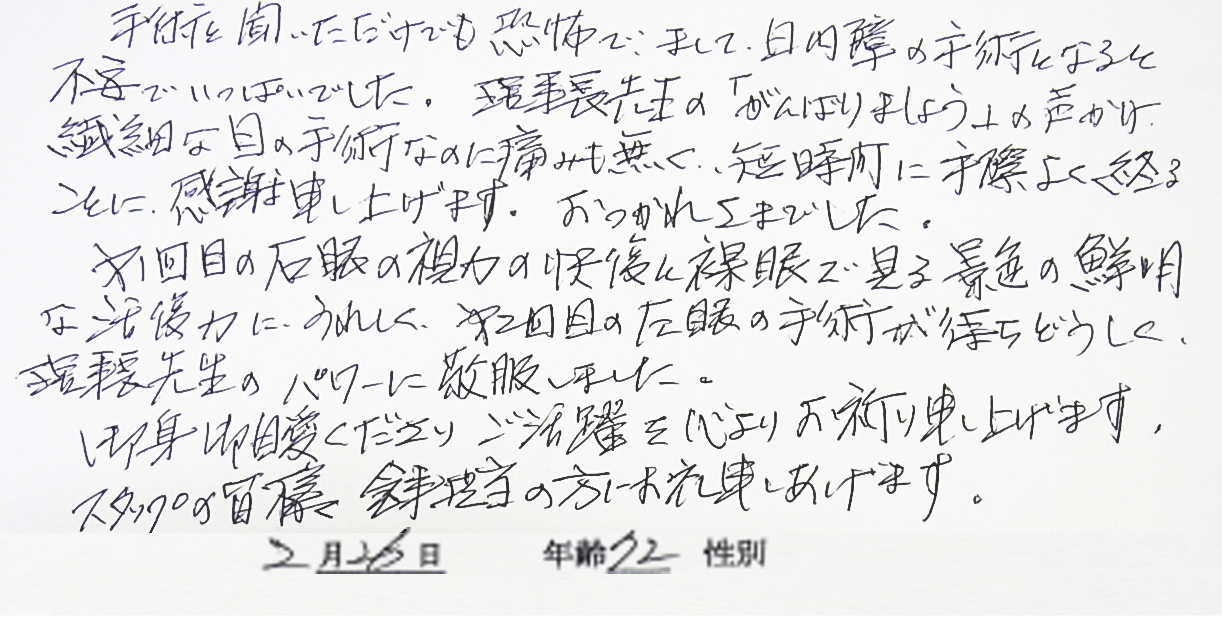 手術と聞いただけでも恐怖で、まして、白内障の手術となると
不安でいっぱいでした。理事長先生の「がんばりましょう」の声かけ、
繊細な目の手術なのに痛みも無く、短時間に手際よく終る
ことに、感謝申し上げます。おつかれさまでした。
第1回目の右眼の視力の快復に裸眼で見る景色の鮮明
な活復力に、うれしく、第2回目の左眼の手術が待ちどうしく、
理事長先生のパワーに敬服しました。
御身御自愛くださりご活躍を心よりお祈り申し上げます、
スタッフの皆様、食事担当の方にお礼申しあげます。
2月26日 年齢72 性別